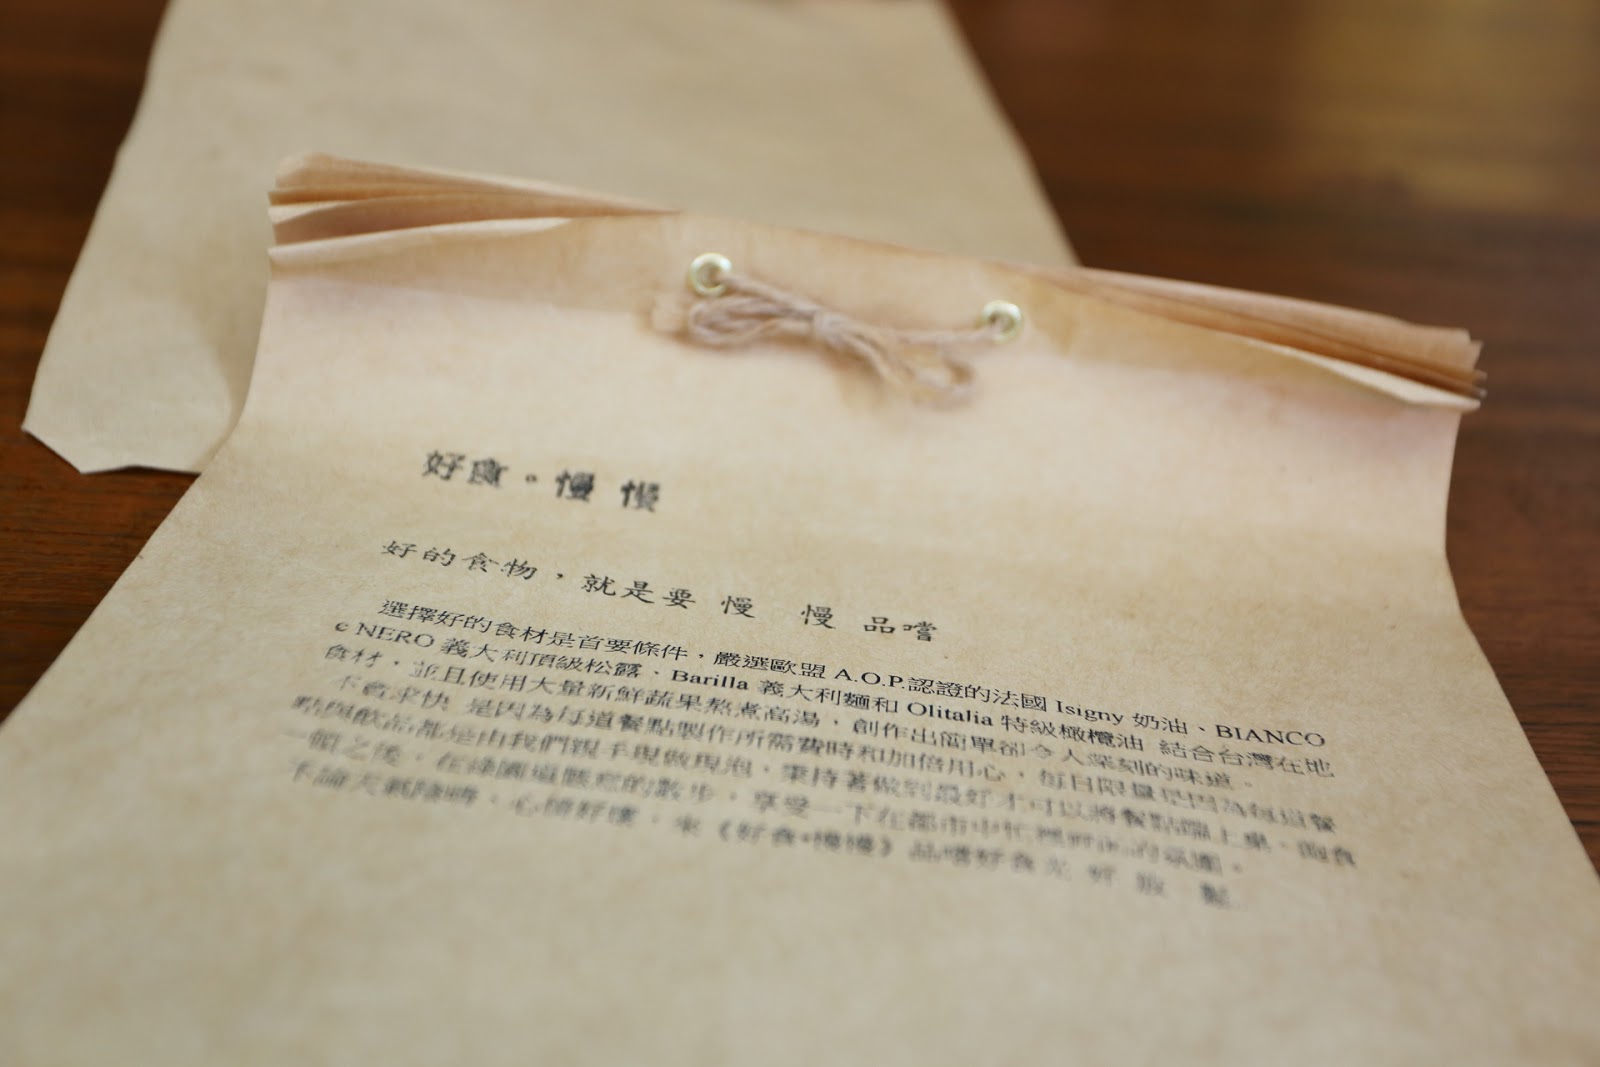 好食。慢 慢
好的食物，就是要 慢 慢 品嚐
選擇好的食材是首要條件，嚴選歐盟 A.O.P.認證的法國 Isigny 奶油、BIANCO
e NERO 義大利頂級松露、Barilla 義大利麵和 Olitalia 特級橄欖油 結合台灣在地
食材，並且使用大量新鮮蔬果熬煮高湯，創作出簡單卻令人深刻的味道。
不會求快 是因為每道餐點製作所需費時和加倍用心，每日限量是因為每道餐
點與飲品都是由我們親手現做現泡，秉持著做到最好才可以將餐點端上桌。飽食
一頓之後，在綠園道愜意的散步，享受一下在都市中忙裡的氛圍。
不論天氣陰晴、心情好壞，來《好食•慢慢》品嚐好食光 好 放 鬆